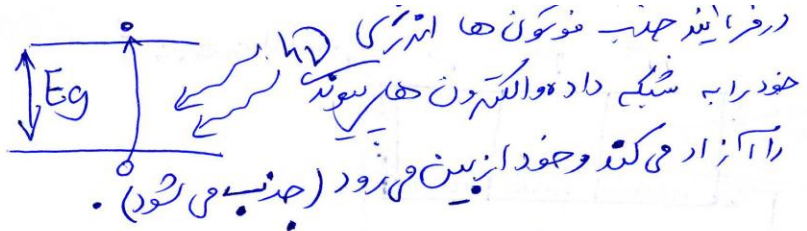 در فرآیند جذب فوتون ها انرژی hν
خود را به شبکه داده و الکترون های پیوند
Eg
را آزاد می کند و خود از بین می رود (جذب می شود).